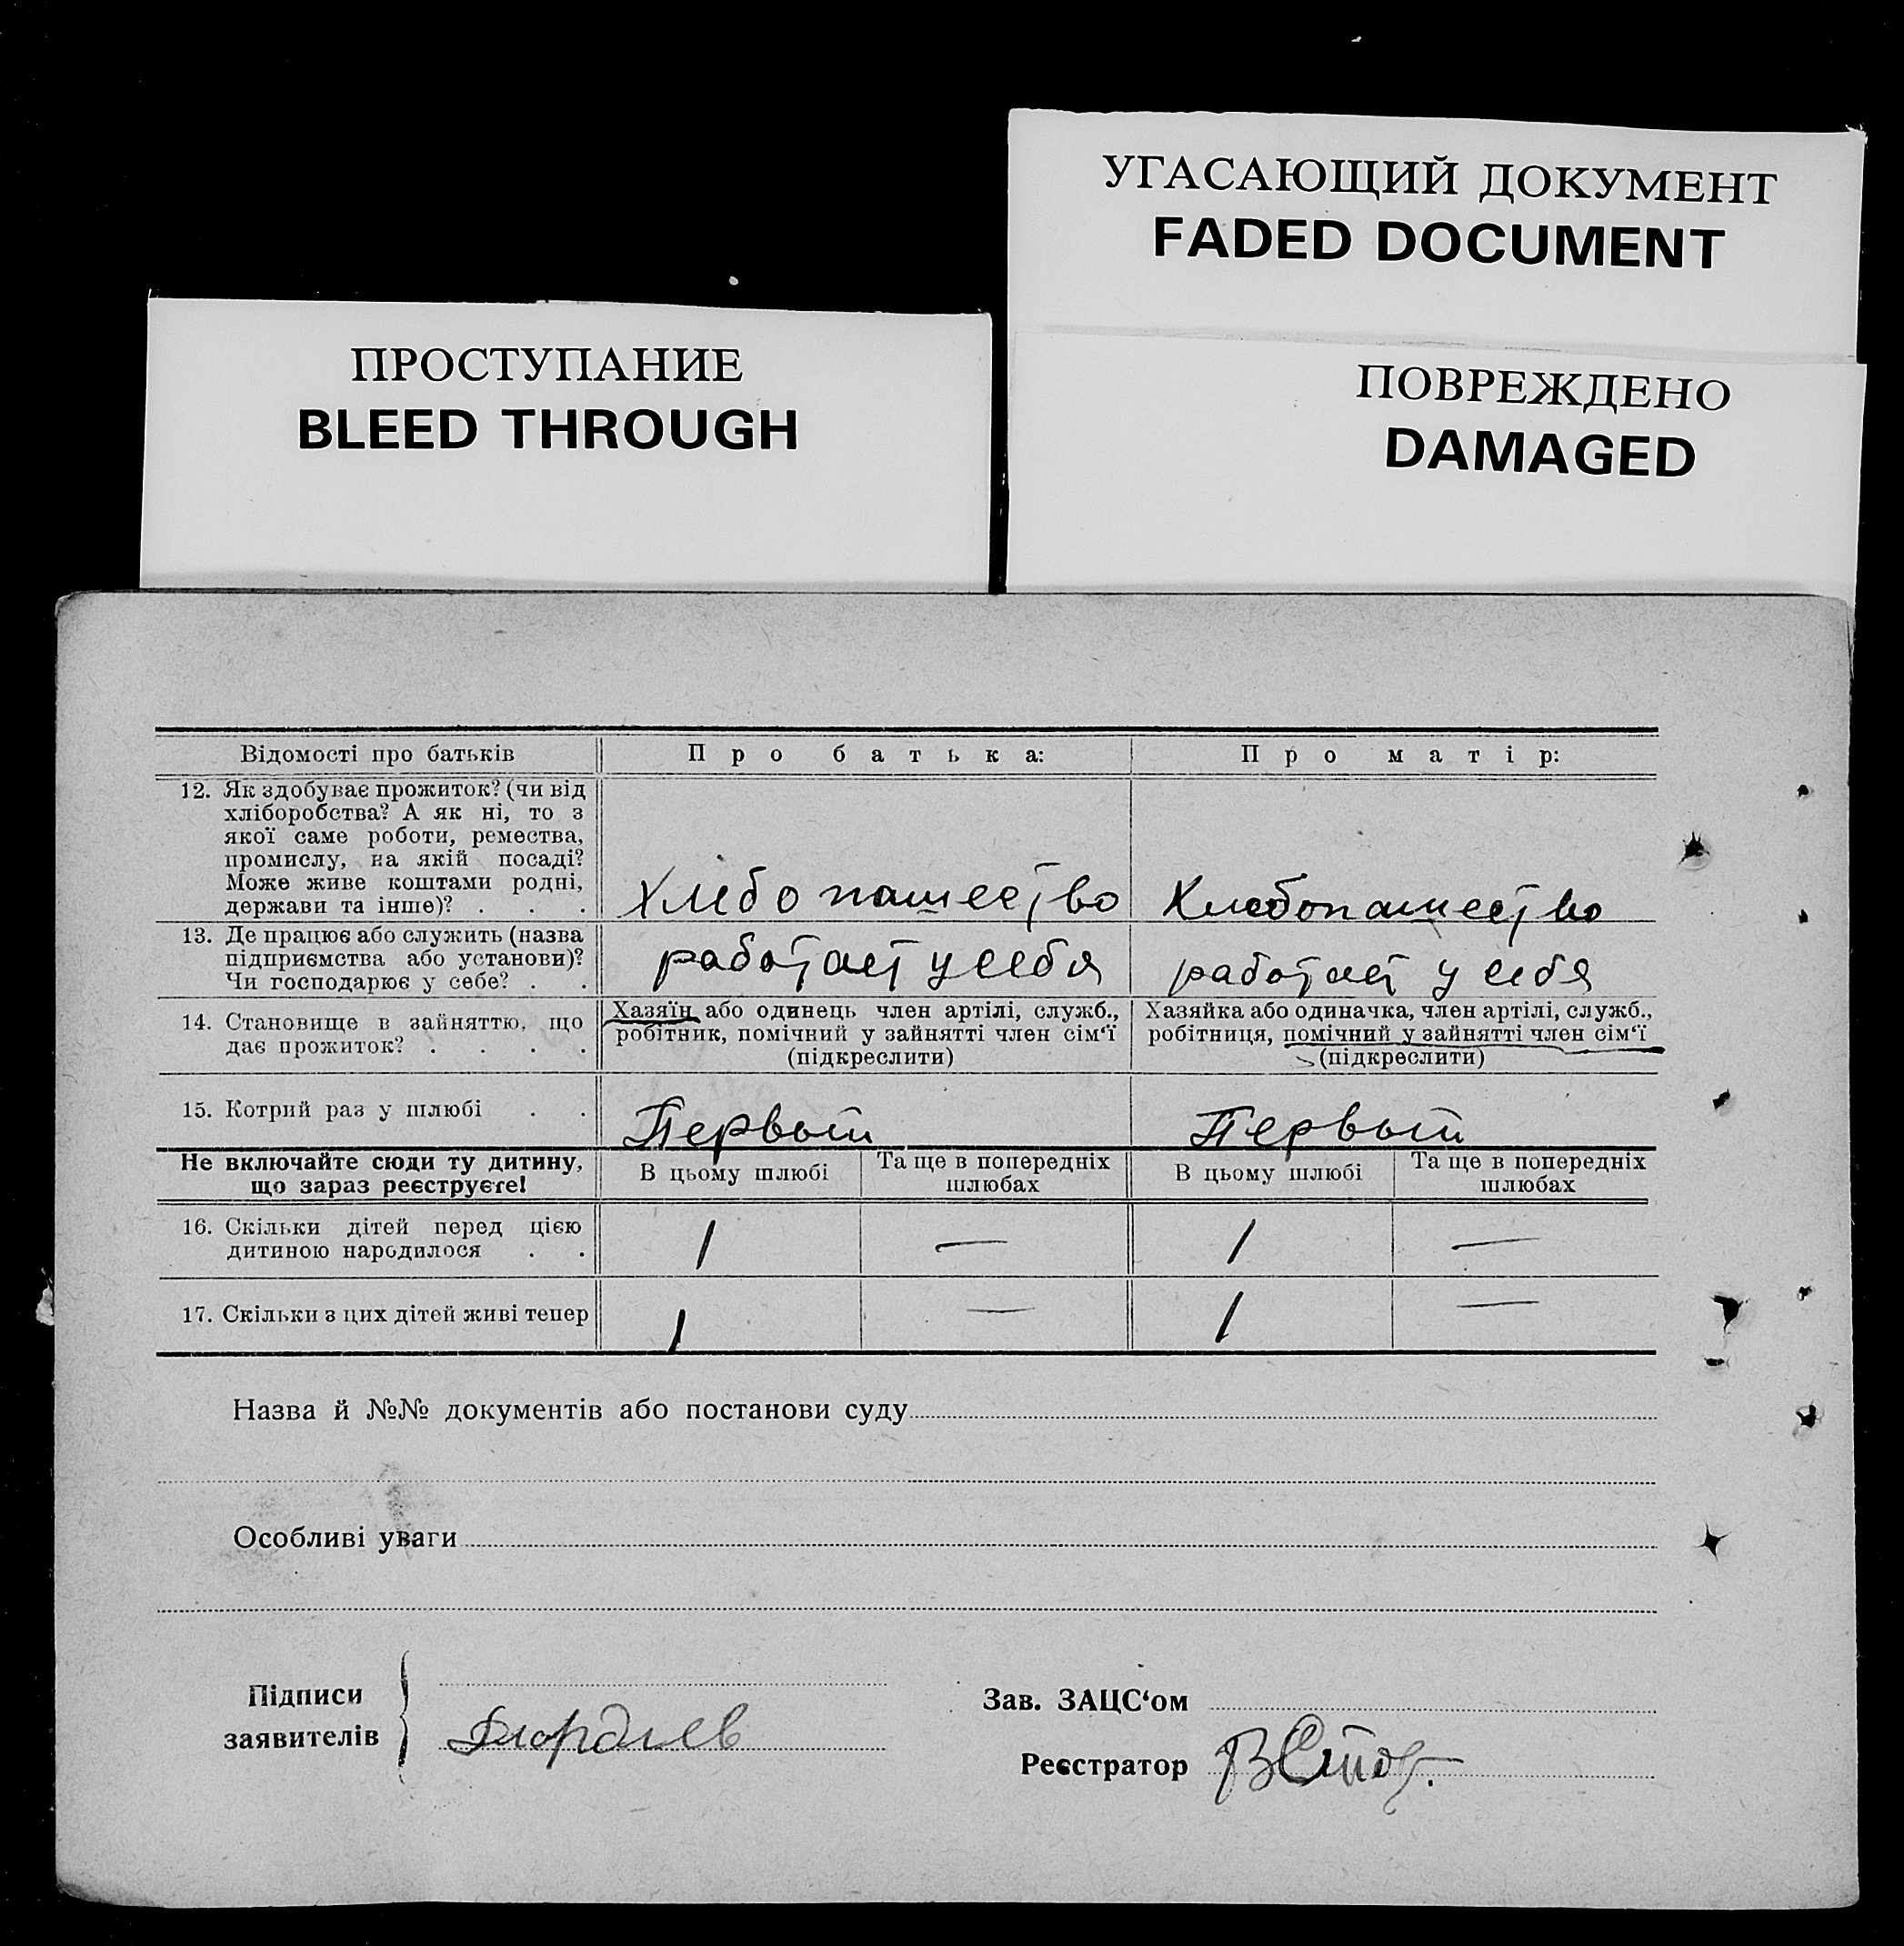 УГАСАЮЩИЙ ДОКУМЕНТ
FADED DOCUMENT
ПРОСТУПАНИЕ
BLEED THROUGH
ПОВРЕЖДЕНО
DAMAGED
Відомості про батьків Про батька: Про матір:
12. Як здобуває прожиток? (чи від
хліборобства? А як ні, то з
якої саме роботи, ремества,
промислу, на якій посаді?
Може живе коштами родні,
держави та інше)? . . .
Хлебопашество Хлебопашество
13. Де працює або служить (назва
підприємства або установи)?
Чи господарює у себе? . .
работает у себя работает у себя
14. Становище в зайняттю, що
дає прожиток? . . . .
Хазяїн або одинець член артілі, служб.,
робітник, помічний у зайнятті член сім‘ї
(підкреслити)
Хазяйка або одиначка, член артілі, служб.,
робітниця, помічний у зайнятті член сім‘ї
(підкреслити)
15. Котрий раз у шлюбі . . Первый Первый
Не включайте сюди ту дитину,
що зараз реєструєте!
В цьому шлюбі Та ще в попередніх
шлюбах
В цьому шлюбі Та ще в попередніх
шлюбах
16. Скільки дітей перед цією
дитиною народилося . .
1 — 1 —
17. Скільки з цих дітей живі тепер 1 — 1 —
Назва й №№ документів або постанови суду
Особливі уваги
Підписи
заявителів
Зав. ЗАЦС‘ом
Реєстратор